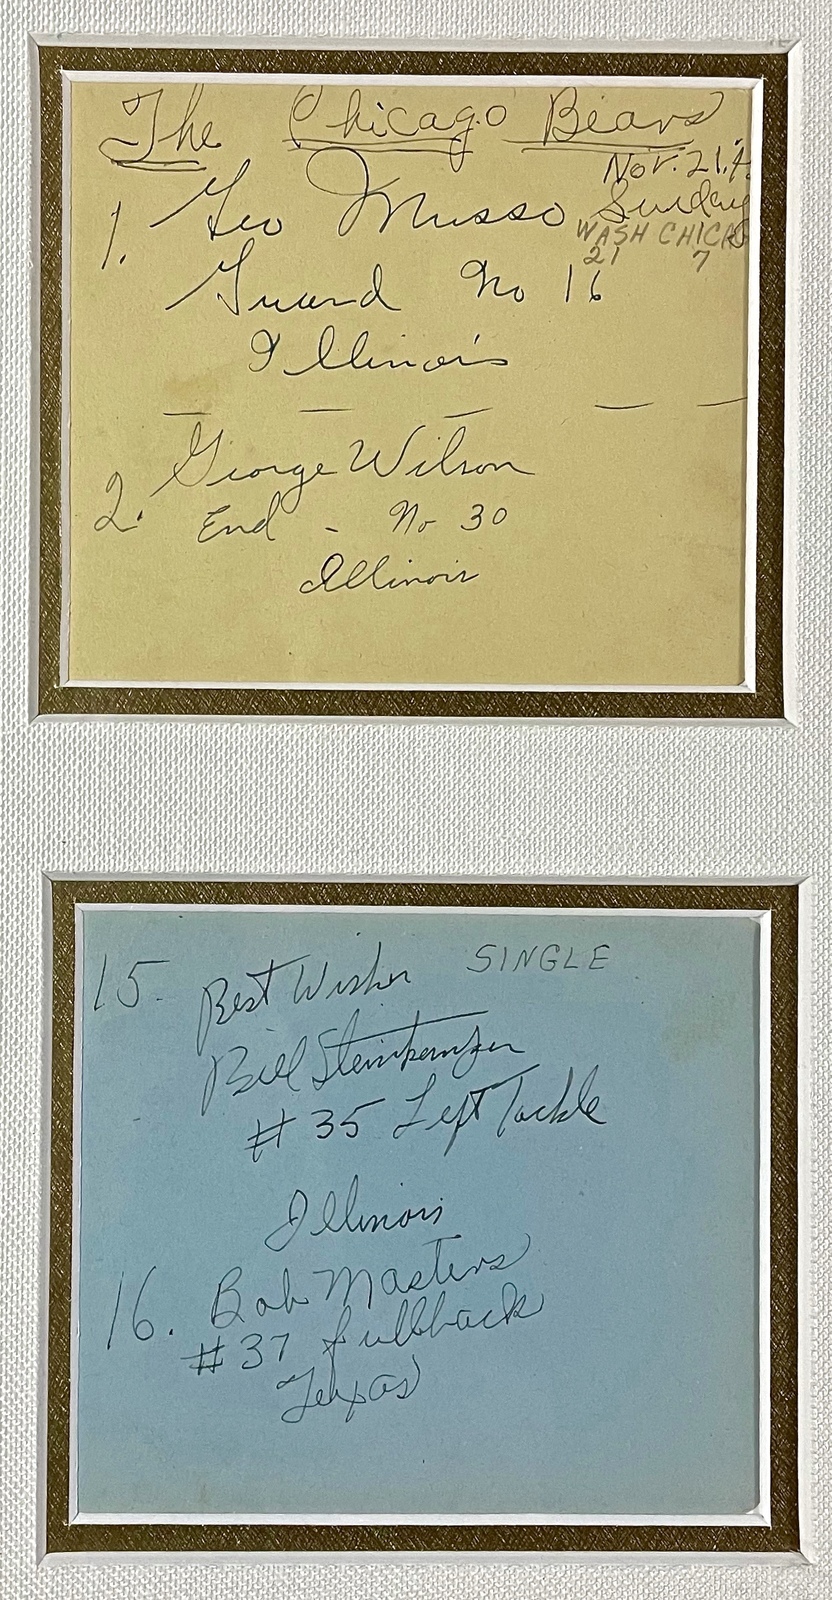 The Chicago Bears
Nov. 21,
1. Geo Musso Sunday
WASH CHICA
21 7
Guard No 16
Illinois
2. George Wilson
End - No 30
Illinois
15. Best Wishes SINGLE
Bill Steinkemper
#35 Left Tackle
Illinois
16. Bob Masters
#37 fullback
Texas